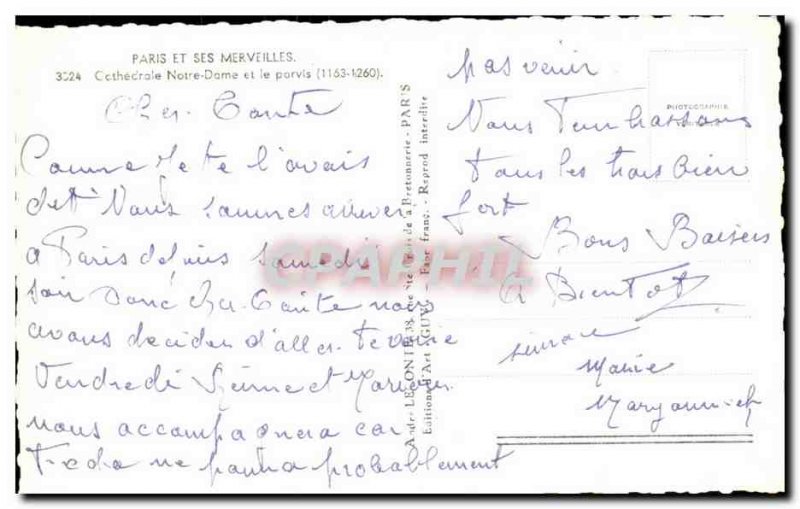 PARIS ET SES MERVEILLES.
3524 Cathédrale Notre-Dame et le parvis (1163-1260).
Cher Tante
Comme Je te l'avais
dit Nous sommes arriver
a Paris depuis samedi
soir donc cher Tante nous
avons decider d'aller te voire
Vendredi et
nous accompagnera car
ne pourra probablement
pas venir.
Nous T'embrassons
tous les trois bien
fort
Bons Baisers
A Bientot
Marie
André LECONTE, 38, rue Ste Croix de la Bretonnerie - PARIS
Editions d'Art "GUY" - Fabr. franç. - Reprod interdite
PHOTOGRAPHIE
CPAPHIL